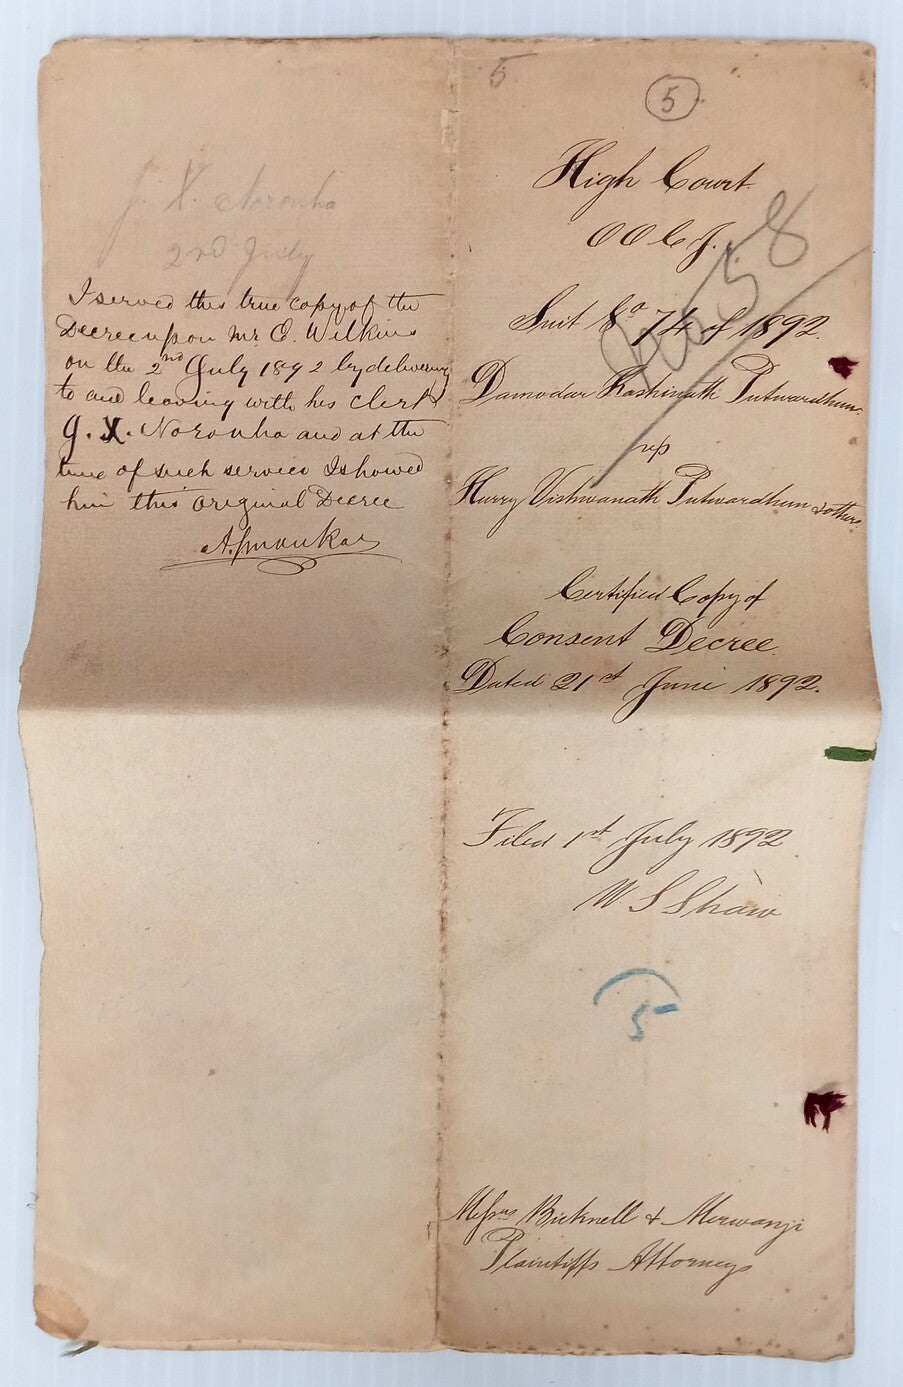 J. X. Noronha
2nd July
I served this true copy of the
Decree upon Mr. O. Wilkins
on the 2nd July 1892 by delivering
to and leaving with his clerk
J. X. Noronha and at the
time of such service I showed
him this original Decree
5
5
High Court
O O C J.
Suit No 74 of 1892.
Damodar Kashinath Putwardhun
v/s
Hurry Vishwanath Putwardhun & others
58
Certified Copy of
Consent Decree
Dated 21st June 1892.
Filed 1st July 1892
W S Shaw
5
Messrs Bicknell & Merwanji
Plaintiffs Attorneys